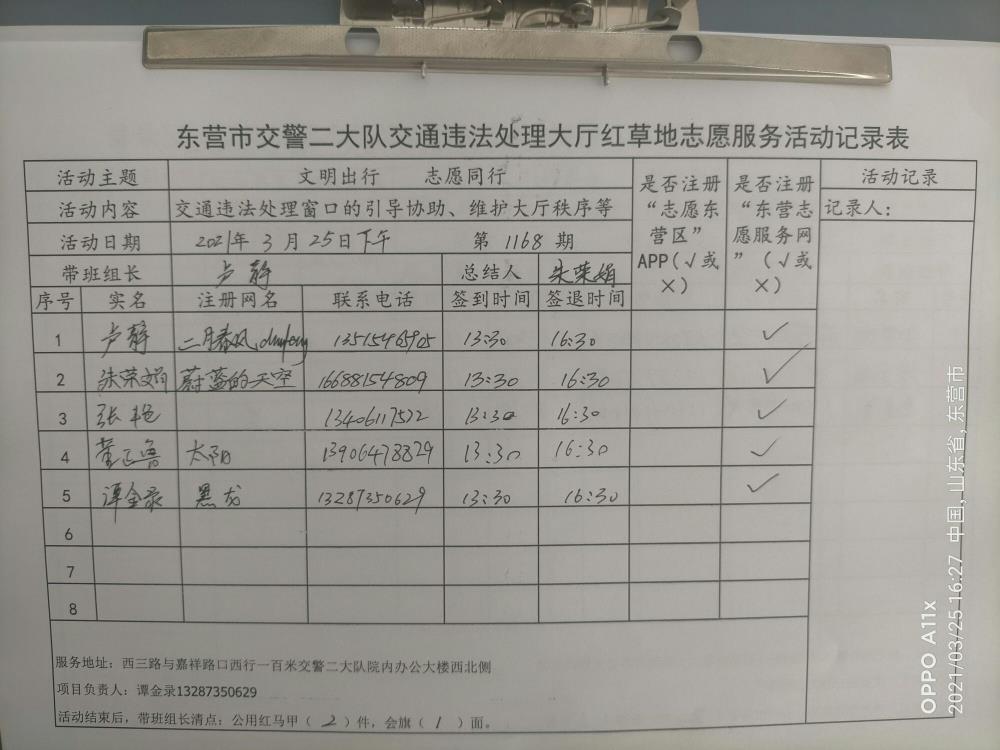 东营市交警二大队交通违法处理大厅红草地志愿服务活动记录表
活动主题 文明出行 志愿同行 是否注册“志愿东营区”APP(√或×) 是否注册“东营志愿服务网”(√或×) 活动记录
活动内容 交通违法处理窗口的引导协助、维护大厅秩序等 记录人:
活动日期 2021年3月25日下午 第1168期
带班组长 卢静 总结人 朱荣娟
序号 实名 注册网名 联系电话 签到时间 签退时间
1 卢静 二月春风 13:30 16:30 ✓
2 朱荣娟 蔚蓝的天空 16688154809 13:30 16:30 ✓
3 张艳 13406117522 13:30 16:30 ✓
4 董正鲁 太阳 13906478829 13:30 16:30 ✓
5 谭金录 黑龙 13287350629 13:30 16:30 ✓
6
7
8
服务地址:西三路与嘉祥路口西行一百米交警二大队院内办公大楼西北侧
项目负责人:谭金录13287350629
活动结束后,带班组长清点:公用红马甲(2)件,会旗(1)面。
OPPO A11x
2021/03/25 16:27 中国,山东省,东营市